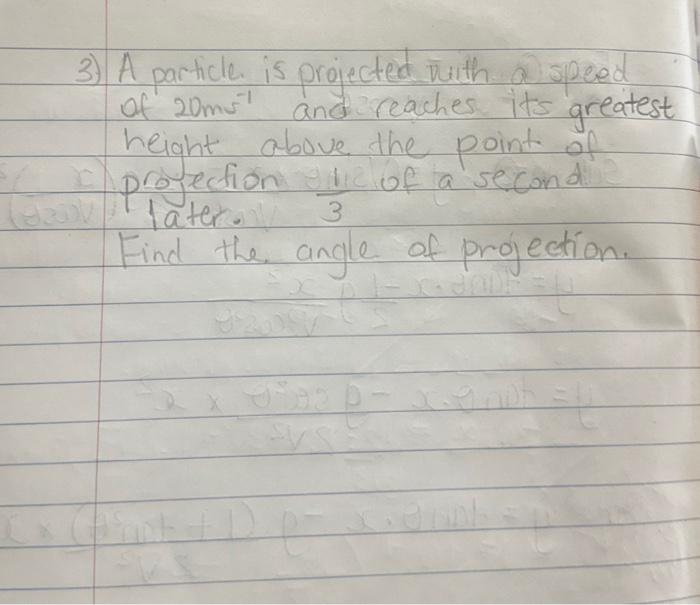 3) A particle is projected with a speed
of 20ms⁻¹ and reaches its greatest
height above the point of
projection 1/3 of a second
later.
Find the angle of projection.